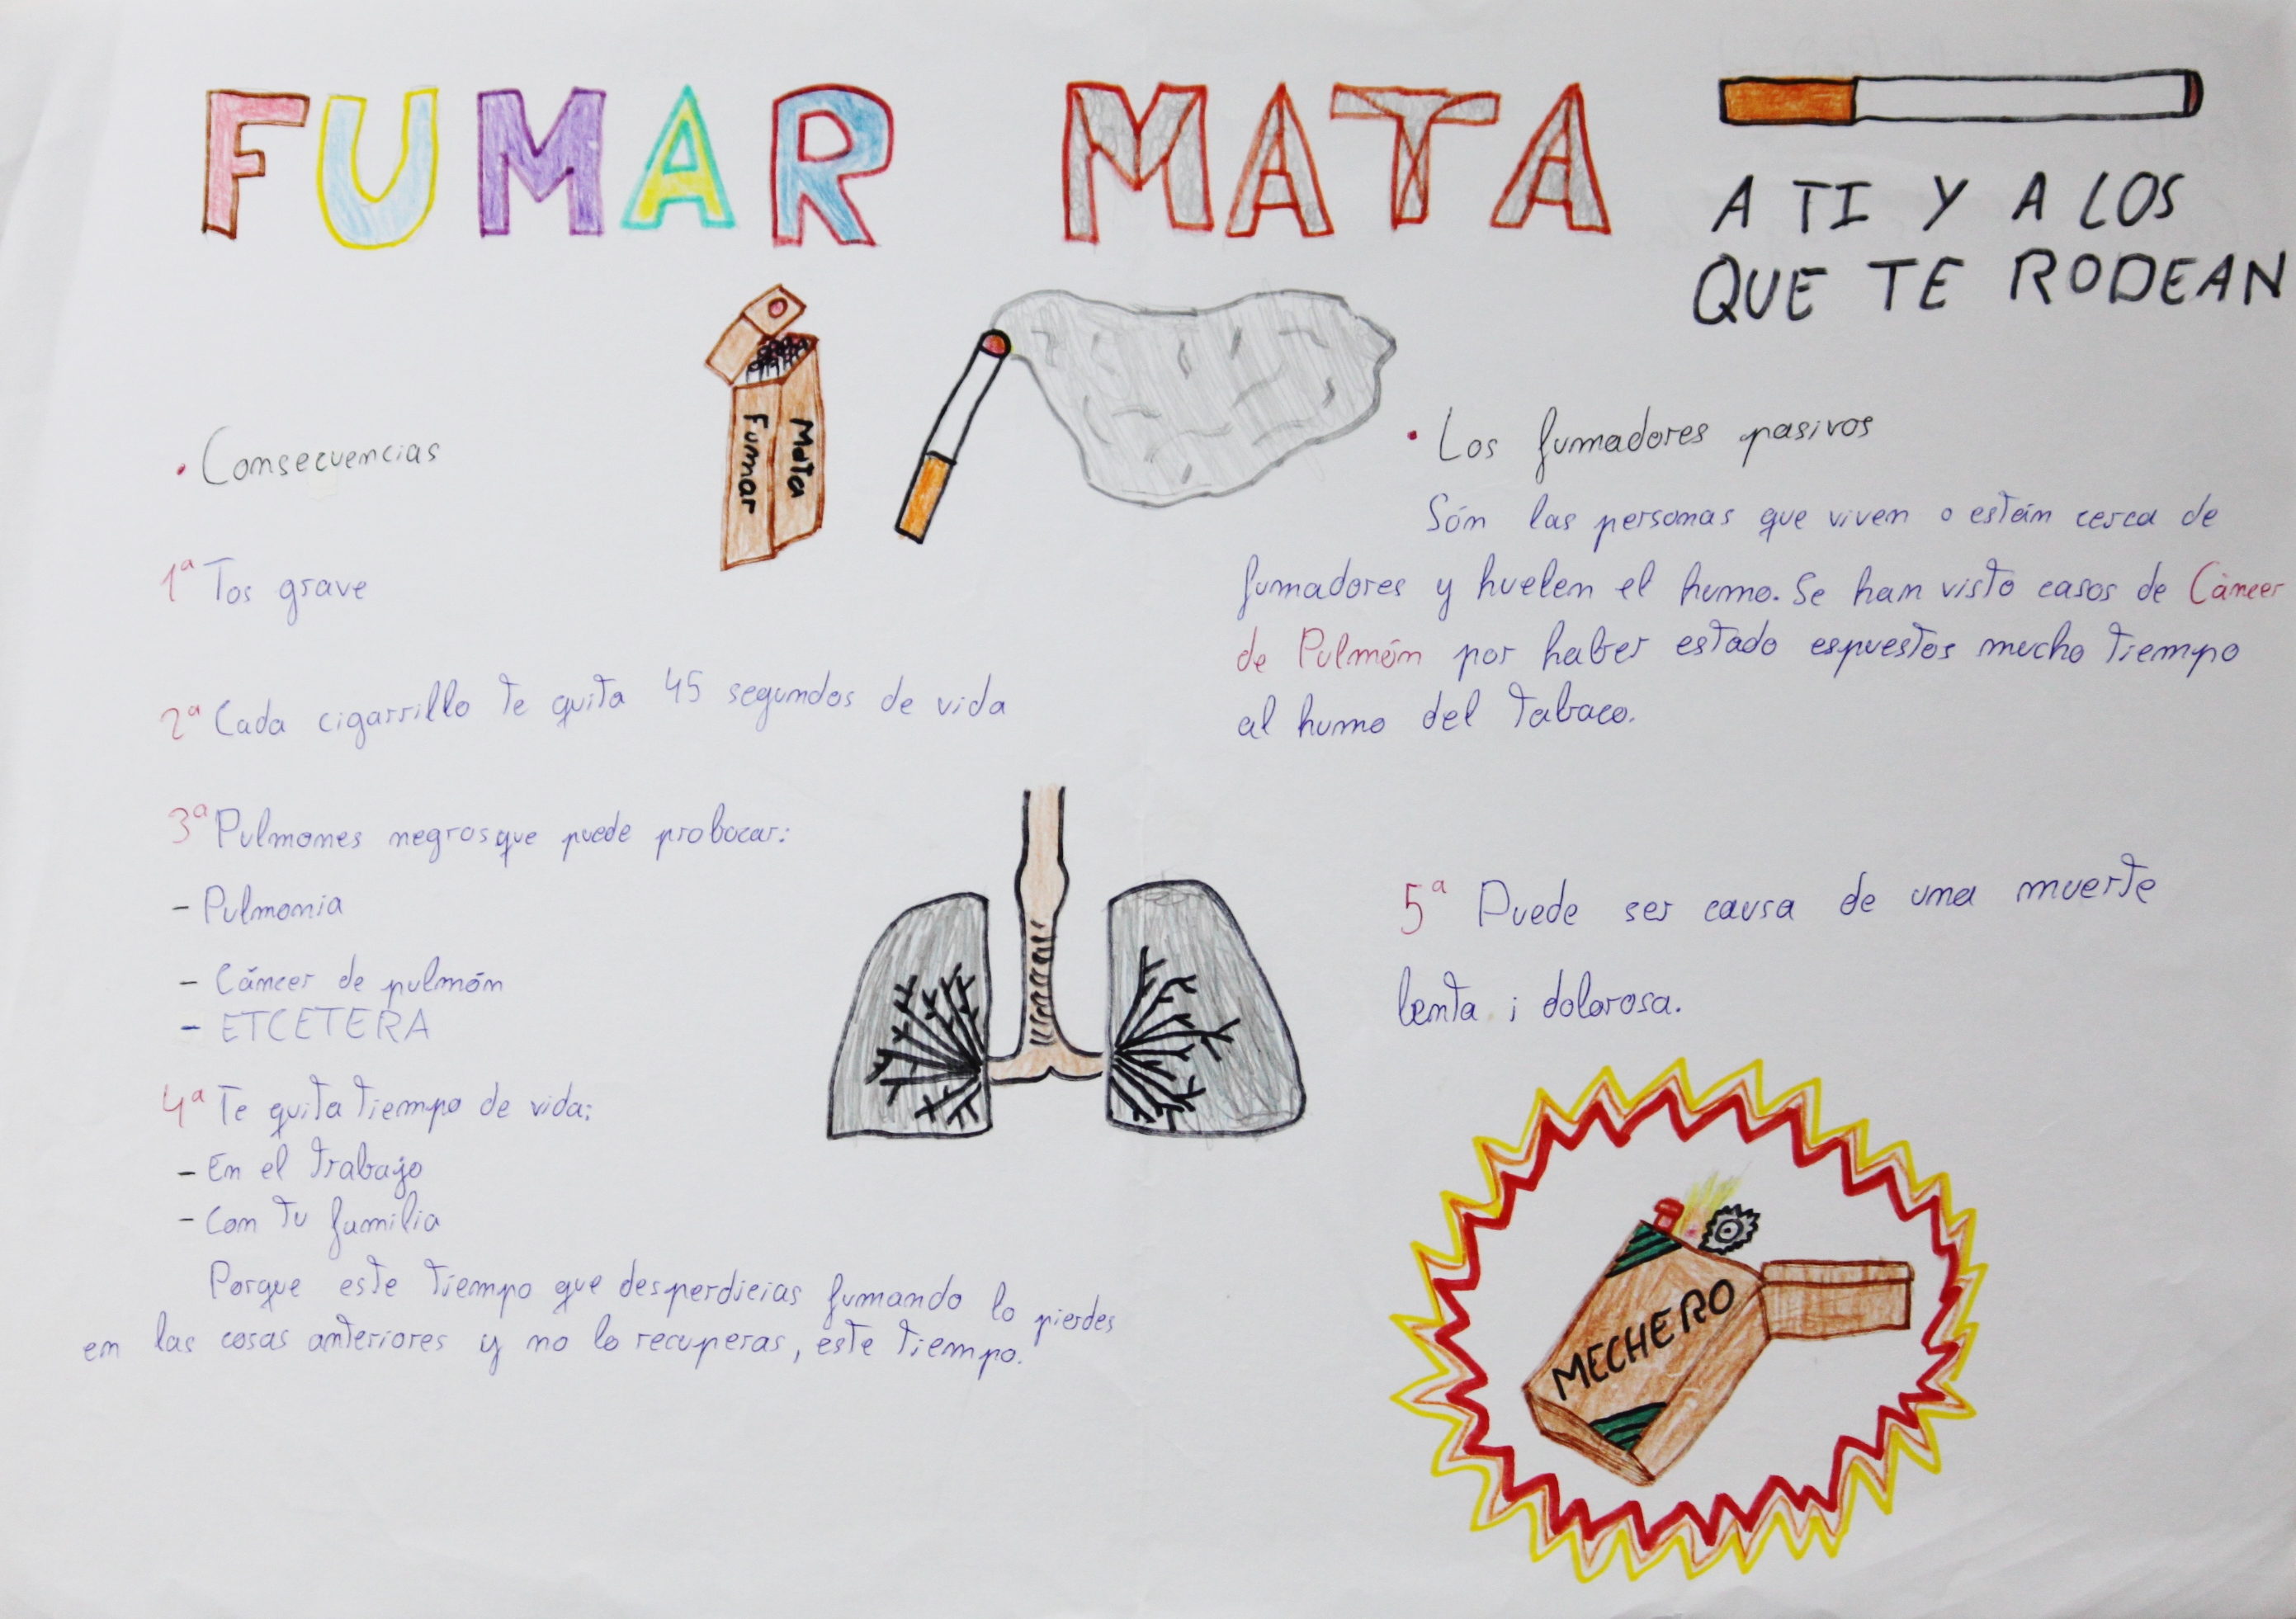 FUMAR MATA
A TI Y A LOS
QUE TE RODEAN
Mata
Fumar
• Consecuencias
1ª Tos grave
2ª Cada cigarrillo te quita 45 segundos de vida
3ª Pulmones negros que puede probocar:
- Pulmonia
- Cáncer de pulmón
- ETCETERA
4ª Te quita tiempo de vida:
- En el trabajo
- Con tu familia
Porque este tiempo que desperdicias fumando lo pierdes
en las cosas anteriores y no lo recuperas, este tiempo.
• Los fumadores pasivos
Són las personas que viven o están cerca de
fumadores y huelen el humo. Se han visto casos de Cáncer
de Pulmón por haber estado espuestos mucho tiempo
al humo del tabaco.
5ª Puede ser causa de una muerte
lenta i dolorosa.
MECHERO